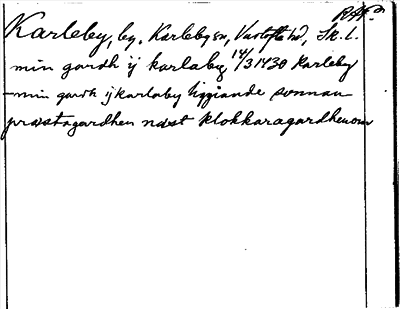 RAp.
Karleby, by. Karleby sn, Vartofta hd, Sk. l.
min gardh ij karlaby 14/3 1430 Karleby
—min gardh ij karlaby liggiande sonnan
præstagardhen næst klokkaragardhenom